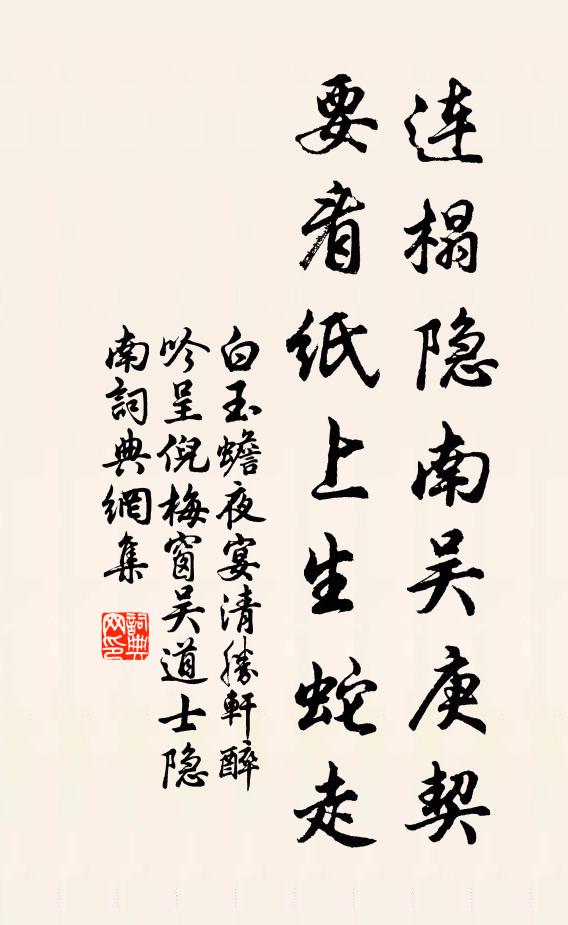 连榻隐南吴庚契
要看纸上生蛇走
白玉蟾夜宴清勝軒醉
吟呈倪梅窗吴道士隐
南詞典網集
詞典
网印